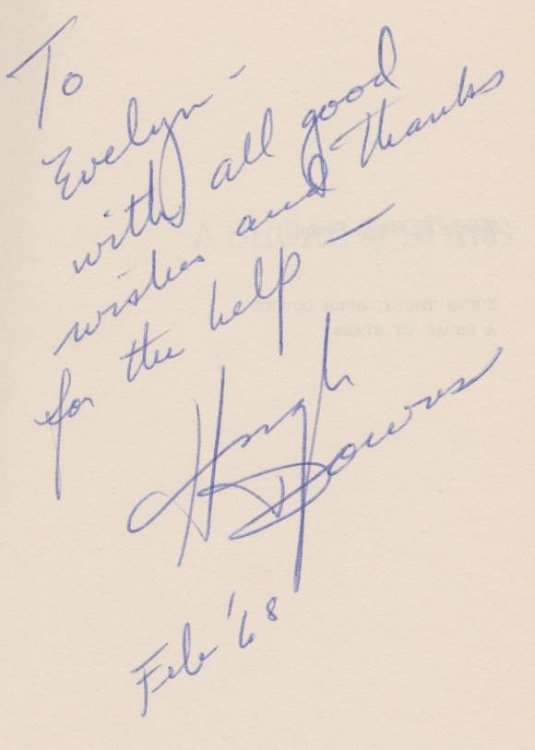 To
Evelyn -
with all good
wishes and thanks
for the help —
Hugh
Downs
Feb '68